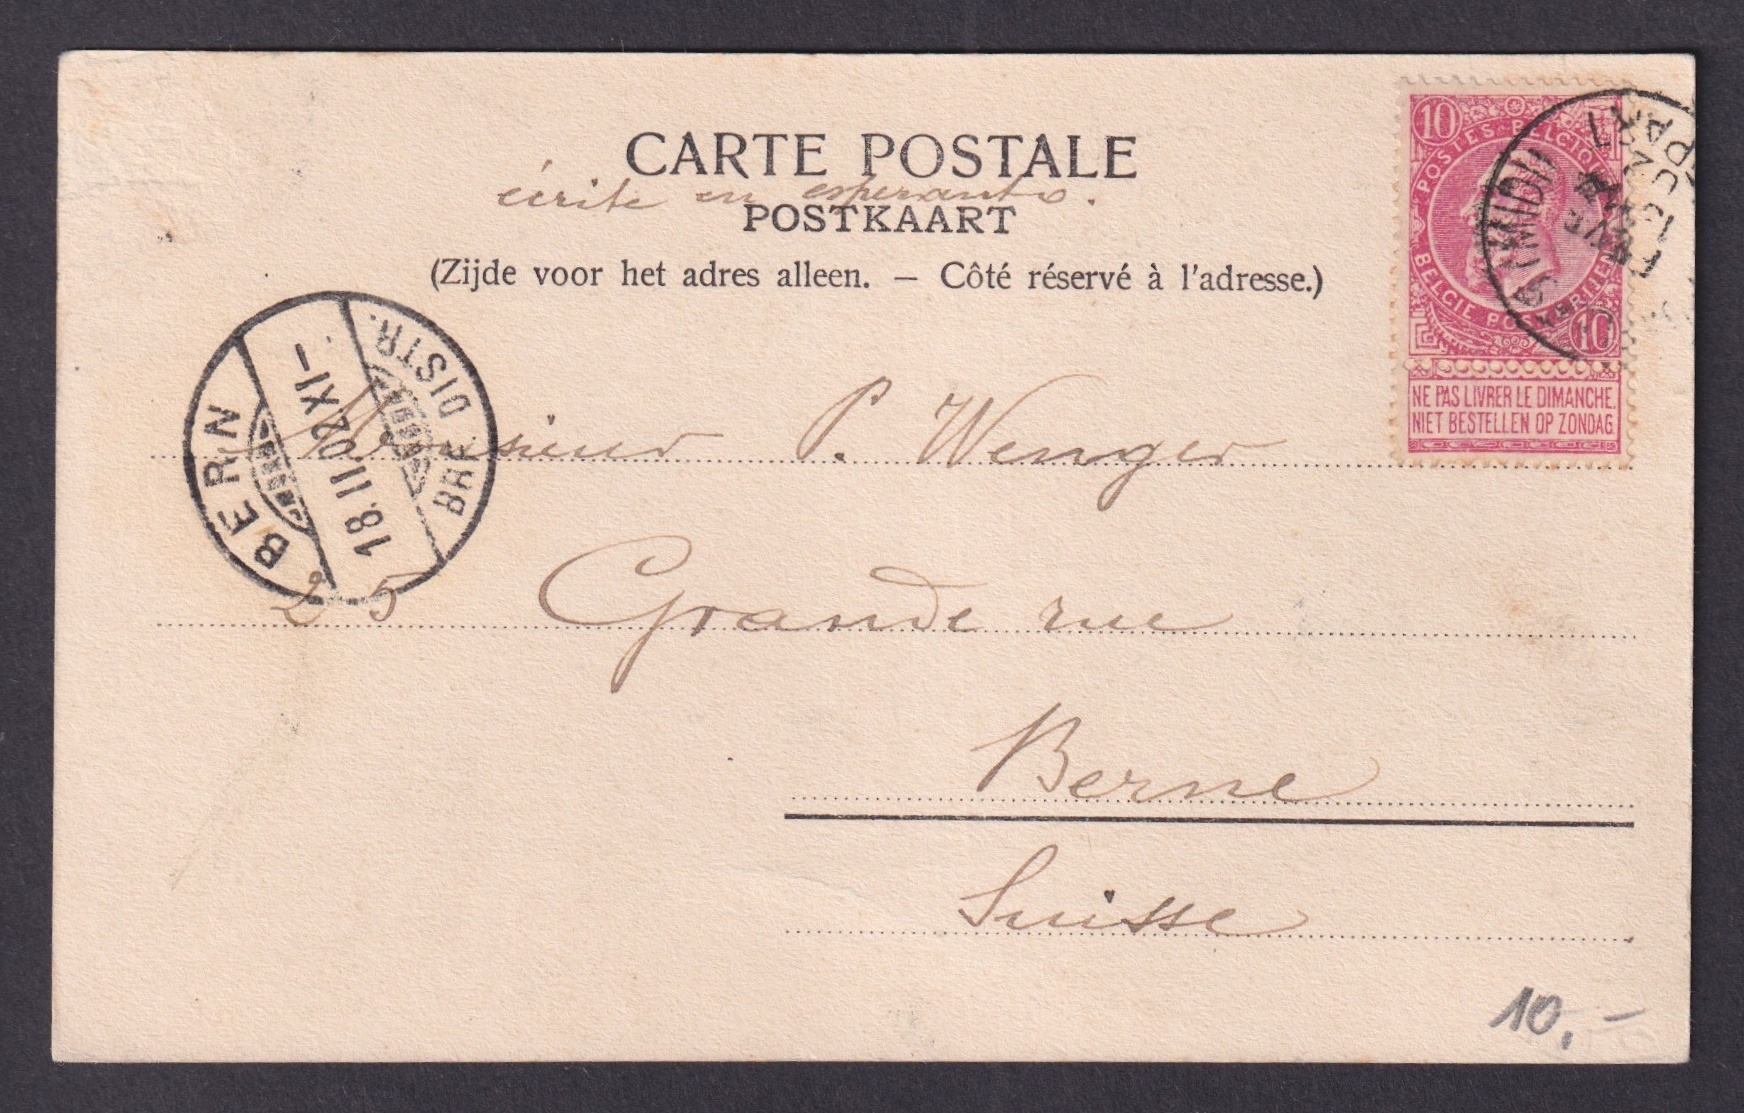 CARTE POSTALE
écrite en esperanto.
POSTKAART
(Zijde voor het adres alleen. — Côté réservé à l'adresse.)
10
POSTES BELGIQUE
BELGIE
10
NE PAS LIVRER LE DIMANCHE.
NIET BESTELLEN OP ZONDAG
(MIDI)
BERN
18.II.02.XI-
BRF. DISTR.
Monsieur P. Wenger
25 Grande rue
Berne
Suisse
10,-